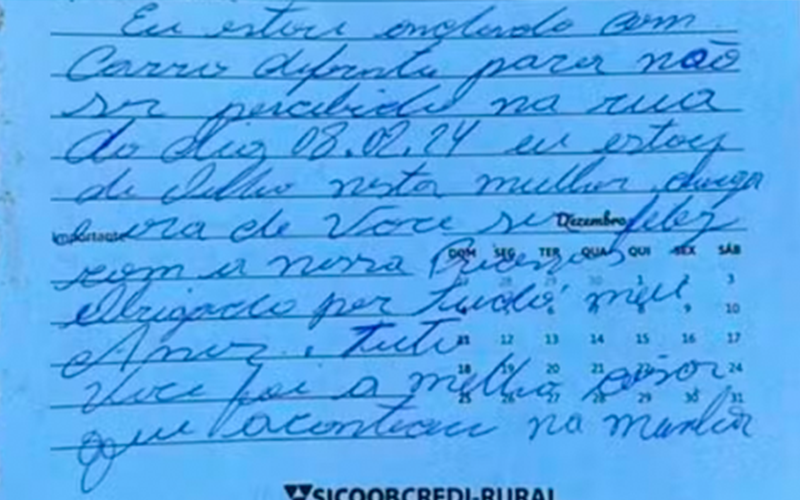 Eu estou andando com
Carro diferente para não
ser percebido na rua
do dia 08.02.24 eu estou
de olho nesta mulher
Importante
Dezembro
ora de Voce se feliz
DOM SEG TER QUA QUI SEX SÁB
com a nossa
27 28 29 30 1 2 3
Obrigado por tudo meu
4 5 6 7 8 9 10
Amor. tuto
11 12 13 14 15 16 17
18 19 20 21 22 23 24
Voce foi a melho coisa
25 26 27 28 29 30 31
que aconteceu na
SICOOBCREDI-RURAL